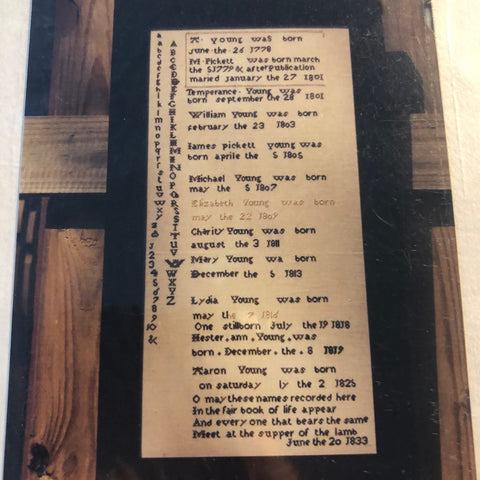 a
a
b
c
d
e
f
g
h
i
k
l
m
n
o
p
q
r
s
t
u
v
w
x
y
z
&
1
2
3
4
5
6
7
8
9
10
&
A
B
C
D
E
F
G
H
I
K
L
M
N
O
P
Q
R
S
T
U
V
W
X
Y
Z
A· young was born
june the 26 1778
M· Pickett was born march
the 5 1779 & after publication
maried january the 27 1801
Temperance Young was
born september the 28 1801
William Young was born
february the 23 1803
Iames pickett young was
born aprile the 5 1805
Michael Young was born
may the 5 1807
Elizabeth Young was born
may the 22 1809
Charity Young was born
august the 3 1811
Mary Young wa born
December the 5 1813
Lydia Young was born
may the 7 1816
One stilborn July the 19 1818
Hester. ann. Young. was
born. December. the. 8 1819
Aaron Young was born
on saturday ly the 2 1825
O may these names recorded here
In the fair book of life appear
And every one that bears the same
Meet at the supper of the lamb
June the 20 1833